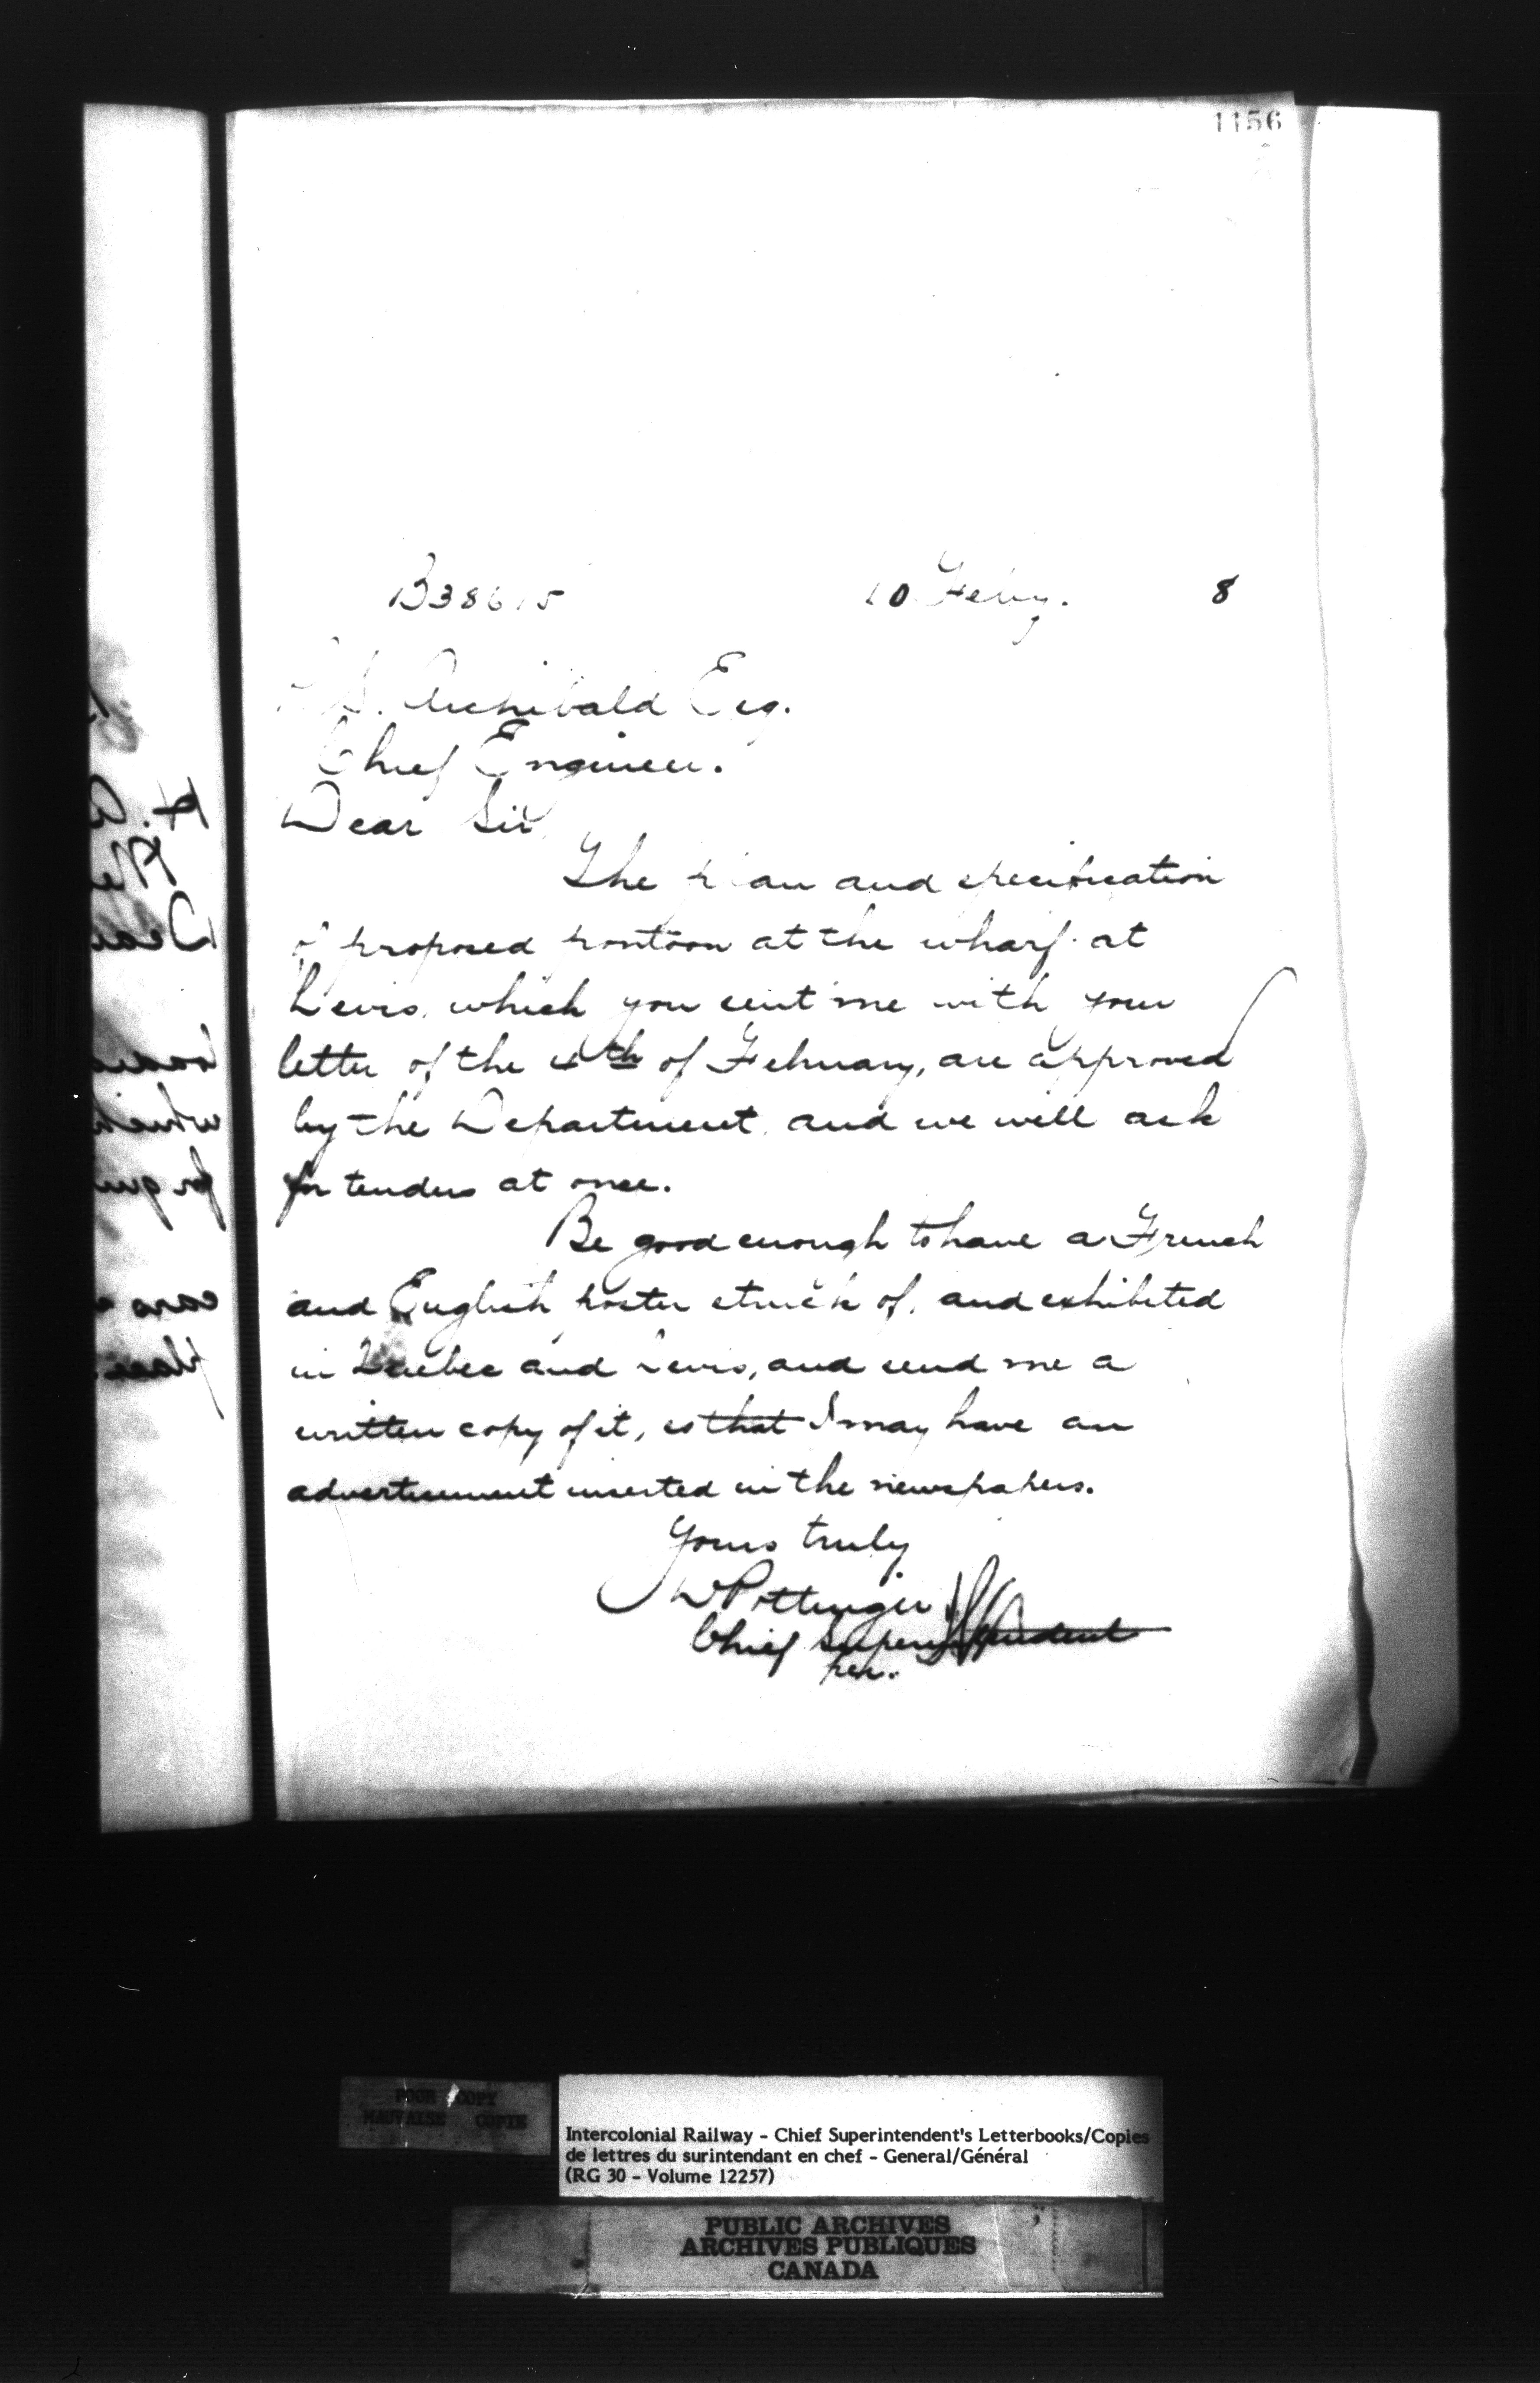 1156
B38615 10 Feby. 8
P. S. Archibald Esq.
Chief Engineer.
Dear Sir,
The plan and specification
of proposed pontoon at the wharf at
Levis, which you sent me with your
letter of the 4th of February, are approved
by the Department, and we will ask
for tenders at once.
Be good enough to have a French
and English poster struck of, and exhibited
in Quebec and Levis, and send me a
written copy of it, so that I may have an
advertisement inserted in the newspapers.
Yours truly
D Pottinger
Chief Superintendent
per.
POOR COPY
MAUVAISE COPIE
Intercolonial Railway - Chief Superintendent's Letterbooks/Copies
de lettres du surintendant en chef - General/Général
(RG 30 - Volume 12257)
PUBLIC ARCHIVES
ARCHIVES PUBLIQUES
CANADA